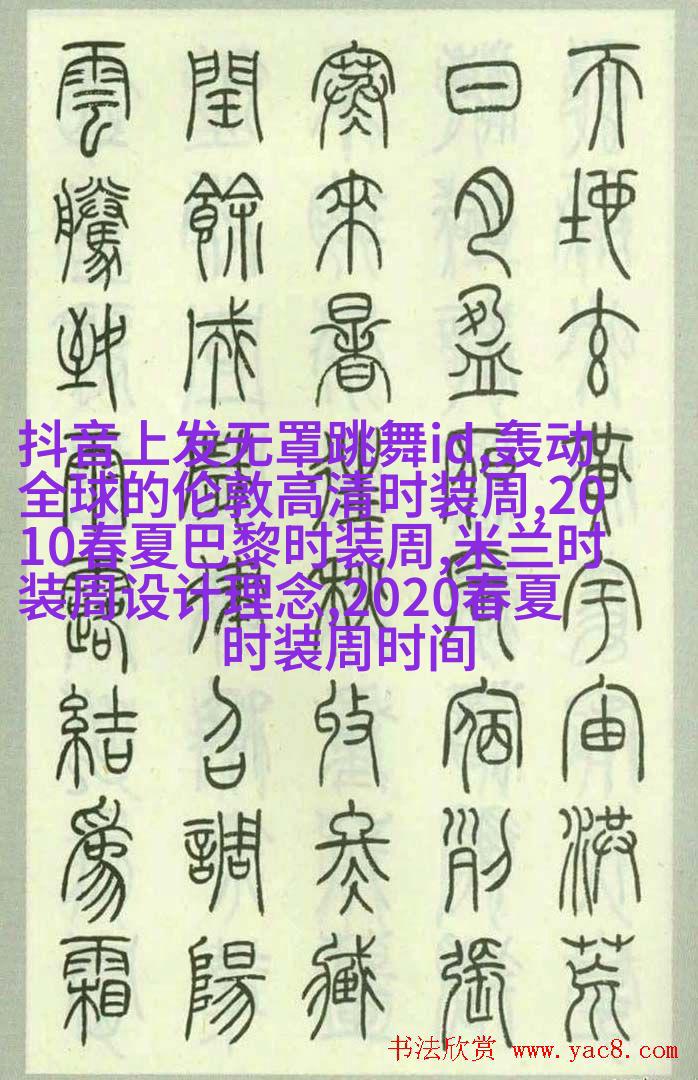 天地玄黃宇宙洪荒
日月盈昃辰宿列張
寒來暑往秋收冬藏
閏餘成歲律召調陽
雲騰致雨露結爲霜
抖音上发无罩跳舞id,轰动
全球的伦敦高清时装周,20
10春夏巴黎时装周,米兰时
装周设计理念,2020春夏
时装周时间
书法欣赏 www.yac8.com